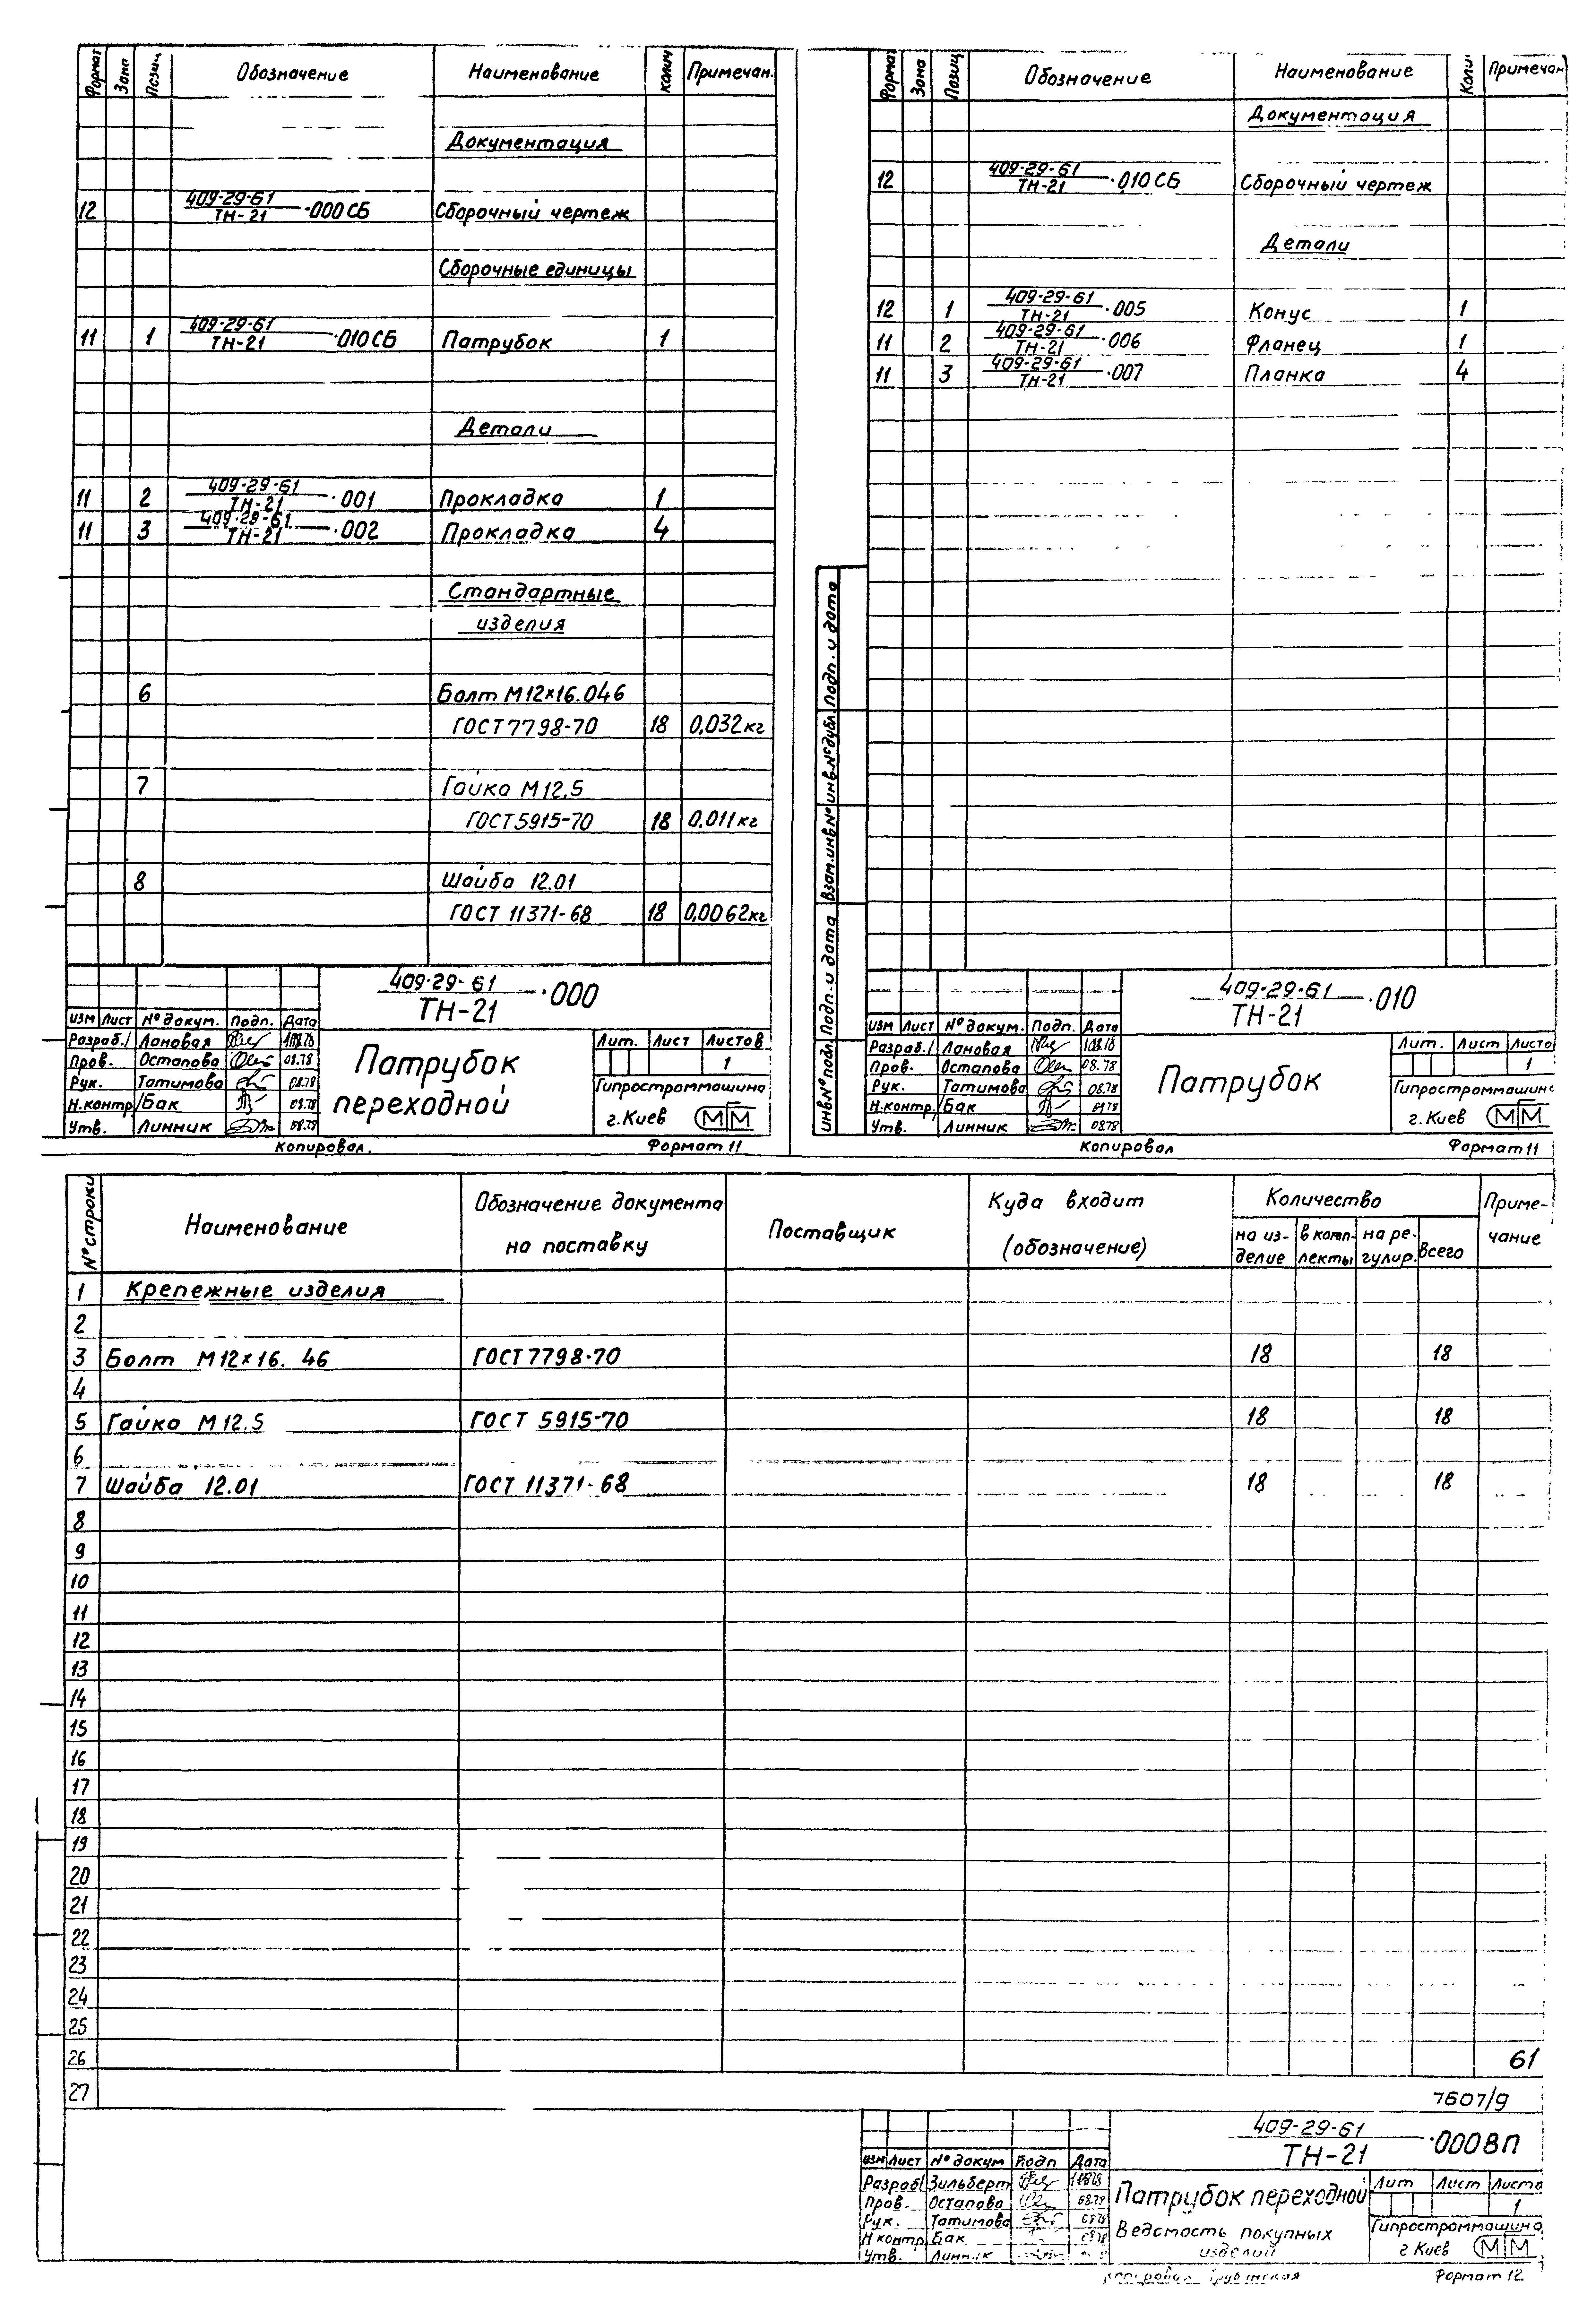 Формат Зона Позиц. Обозначение Наименование Колич Примечан.
Документация
12 409-29-61/ТН-21 ·000СБ Сборочный чертеж
Сборочные единицы
11 1 409-29-61/ТН-21 ·010СБ Патрубок 1
Детали
11 2 409-29-61/ТН-21 ·001 Прокладка 1
11 3 409-29-61/ТН-21 ·002 Прокладка 4
Стандартные
изделия
6 Болт М12×16.046
ГОСТ7798-70 18 0,032кг
7 Гайка М12,5
ГОСТ5915-70 18 0,011кг
8 Шайба 12.01
ГОСТ 11371-68 18 0,0062кг
409-29-61/ТН-21 ·000
Изм Лист № докум. Подп. Дата
Разраб. Лановая
Пров. Остапова 08.78
Рук. Татимова 08.78
Н.контр. Бак 08.78
Утв. Линник 08.78
Патрубок
переходной
Лит. Лист Листов
1
Гипростроммашина
г.Киев ММ
Копировал. Формат 11
Формат Зона Позиц Обозначение Наименование Коли Примечан
Документация
12 409-29-61/ТН-21 ·010СБ Сборочный чертеж
Детали
12 1 409-29-61/ТН-21 ·005 Конус 1
11 2 409-29-61/ТН-21 ·006 Фланец 1
11 3 409-29-61/ТН-21 ·007 Планка 4
Инв.№подл. Подп. и дата Взам.инв№ Инв.№дубл. Подп. и дата
409-29-61/ТН-21 ·010
Изм Лист № докум. Подп. Дата
Разраб. Лановая
Пров. Остапова 08.78
Рук. Татимова 08.78
Н.контр. Бак
Утв. Линник 08.78
Патрубок
Лит. Лист Листо
1
Гипростроммашина
г.Киев ММ
Копировал Формат 11
№строки Наименование Обозначение документа на поставку Поставщик Куда входит (обозначение) Количество Приме-
чание
на из-
делие в комп-
лекты на ре-
гулир. всего
1 Крепежные изделия
2
3 Болт М12×16. 46 ГОСТ7798-70 18 18
4
5 Гайка М12.5 ГОСТ 5915-70 18 18
6
7 Шайба 12.01 ГОСТ 11371-68 18 18
8
9
10
11
12
13
14
15
16
17
18
19
20
21
22
23
24
25
26 61
27 7607/9
409-29-61/ТН-21 ·000ВП
Изм Лист № докум Подп Дата
Разраб Зильберт
Пров. Остапова 08.78
Рук. Татимова 08.78
Н контр Бак 08.78
Утв. Линник
Патрубок переходной
Ведомость покупных
изделий
Лит Лист Листо
1
Гипростроммашина
г Киев ММ
Формат 12